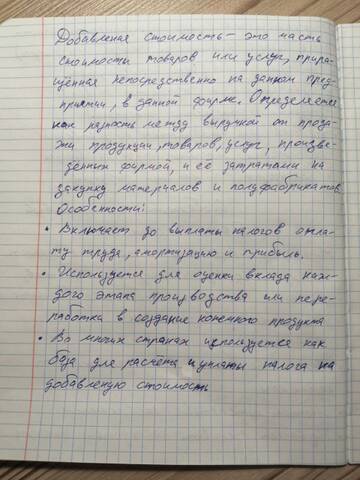 Добавленая стоимость - это часть
стоимости товаров или услуг, прира-
щённая непосредственно на данном пред-
приятии, в данной фирме. Определяется
как разность между выручкой от прода-
жи продукции, товаров, услуг, произве-
денных фирмой, и её затратами на
закупку материалов и полуфабрикатов
Особенности:
• Включает до выплаты налогов опла-
ту труда, амортизацию и прибыль.
• Используется для оценки вклада каж-
дого этапа производства или пере-
работка в создание конечного продукта
• Во многих странах используется как
база для расчета и уплаты налога на
добавленую стоимость